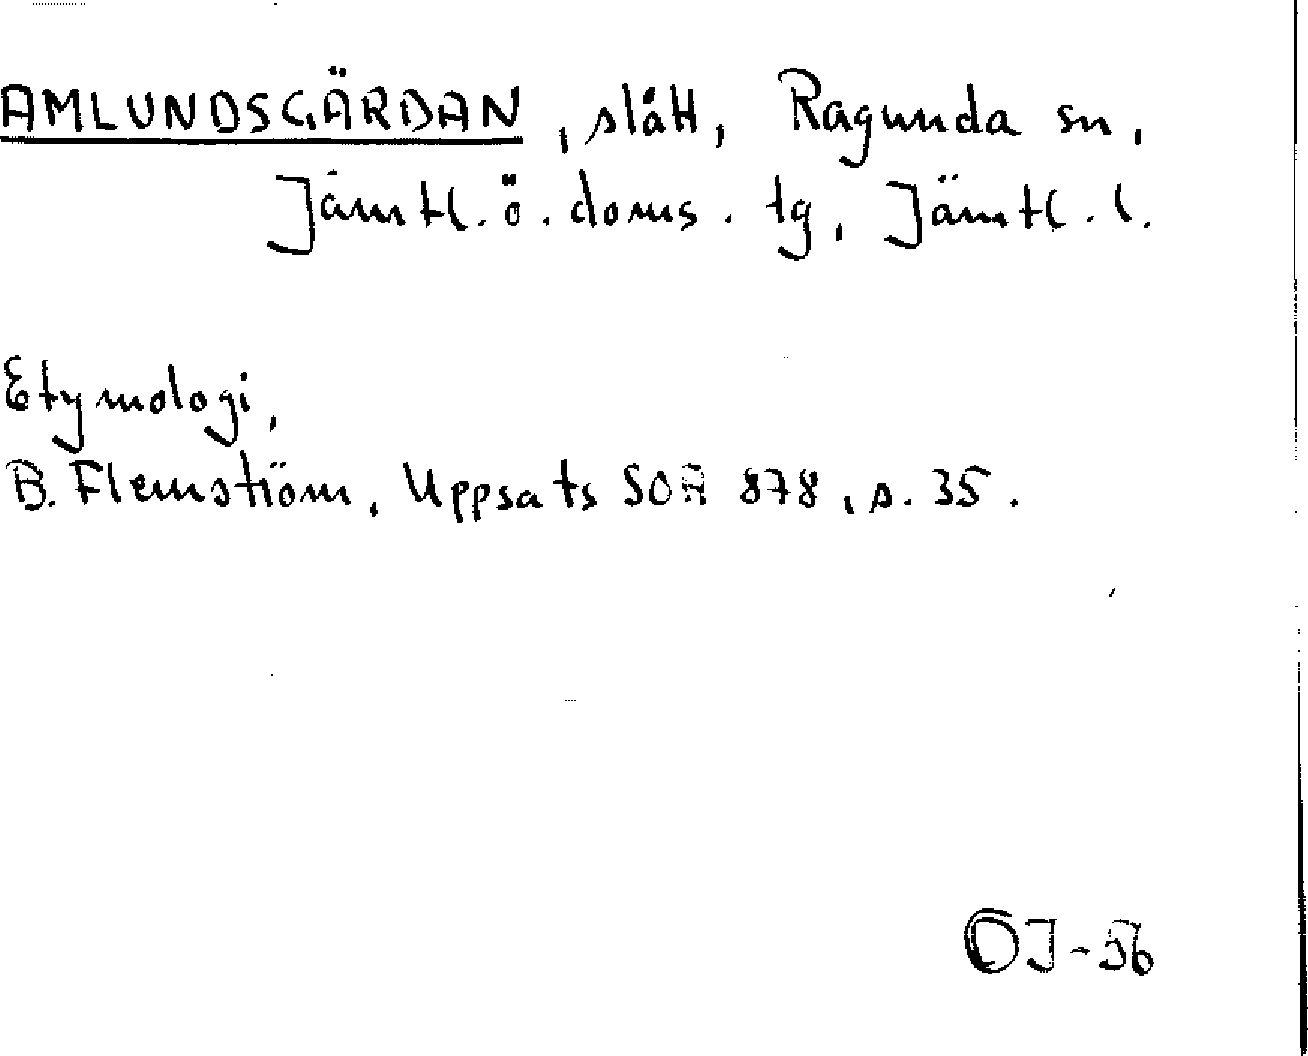 AMLUNDSGÄRDAN, slått, Ragunda sn,
Jämtl. ö. doms. tg, Jämtl. l.
Etymologi,
B. Flemström, Uppsats SOA 878, s. 35.
OJ-56